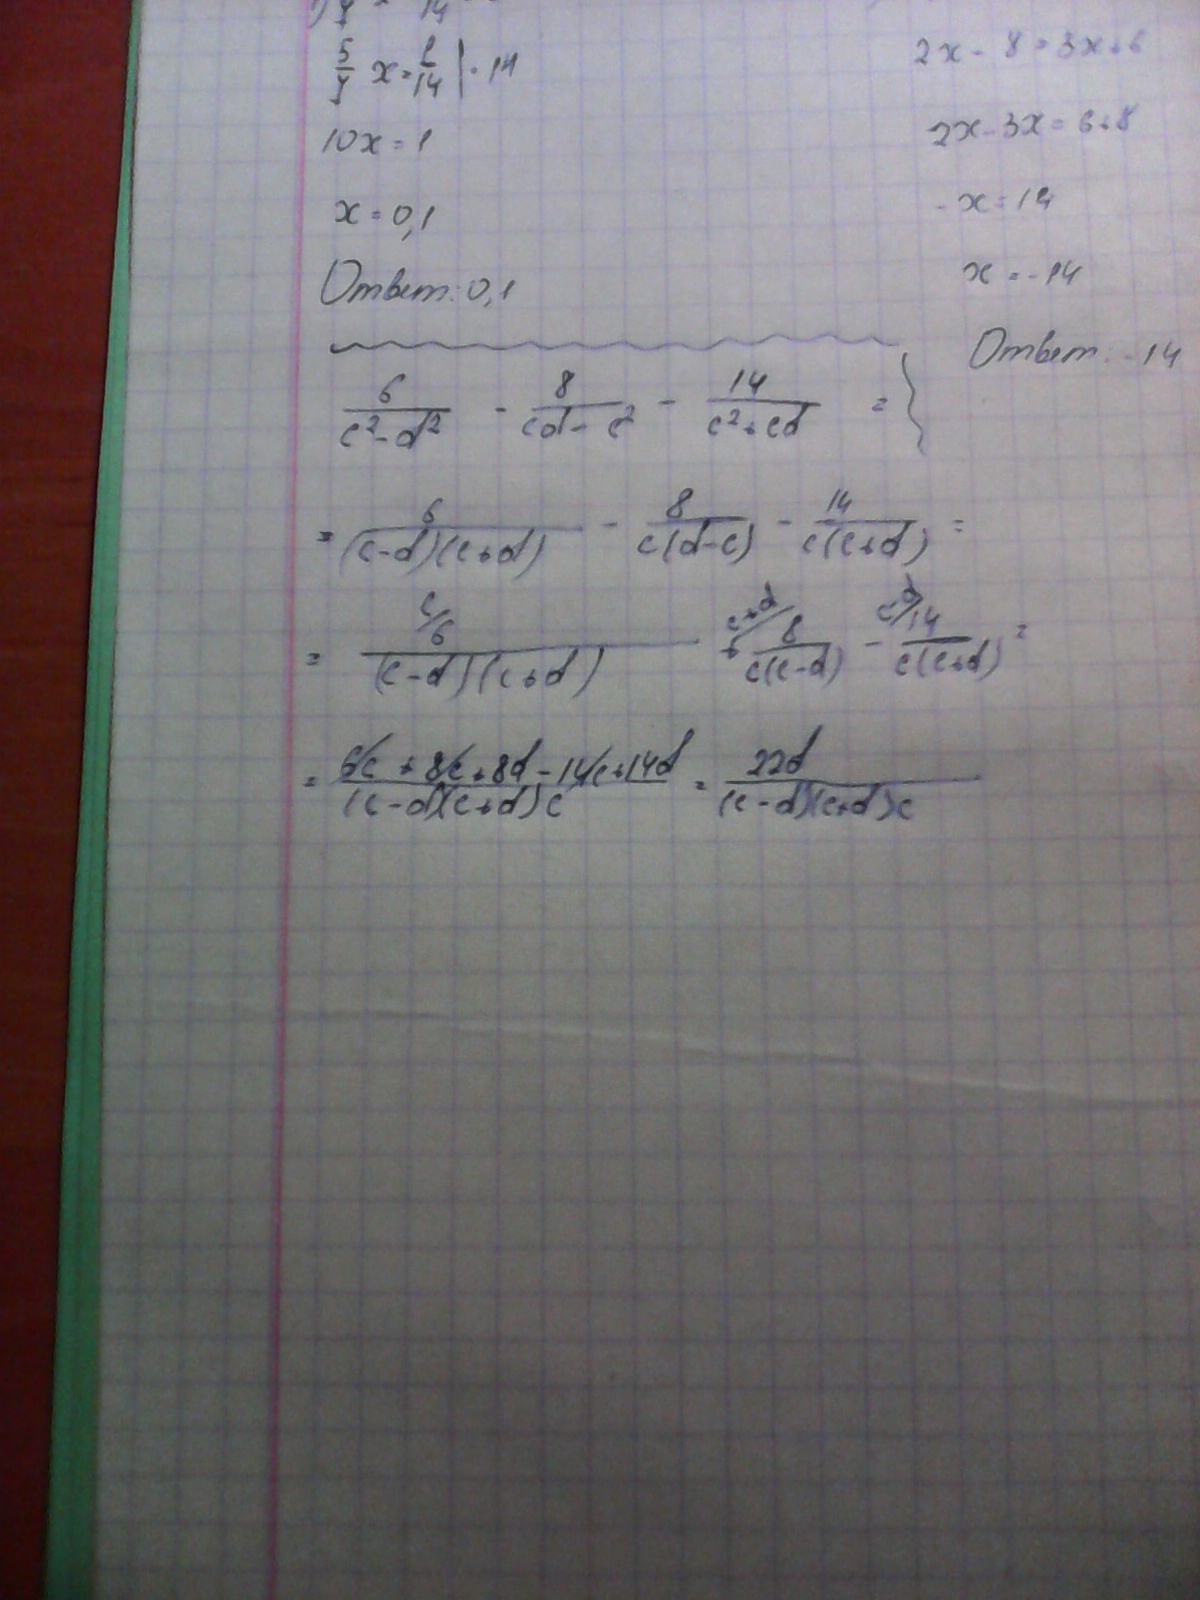 5/7 x = 1/14 | · 14
10x = 1
x = 0,1
Ответ: 0,1
2x - 8 = 3x + 6
2x - 3x = 6 + 8
- x = 14
x = -14
Ответ: -14
6/(c² - d²) - 8/(cd - c²) - 14/(c² + cd) =
= 6/((c-d)(c+d)) - 8/(c(d-c)) - 14/(c(c+d)) =
= c/ 6/((c-d)(c+d)) + c+d/ 8/(c(c-d)) - c-d/ 14/(c(c+d)) =
= (6c + 8c + 8d - 14c + 14d)/((c-d)(c+d)c) = 22d/((c-d)(c+d)c)